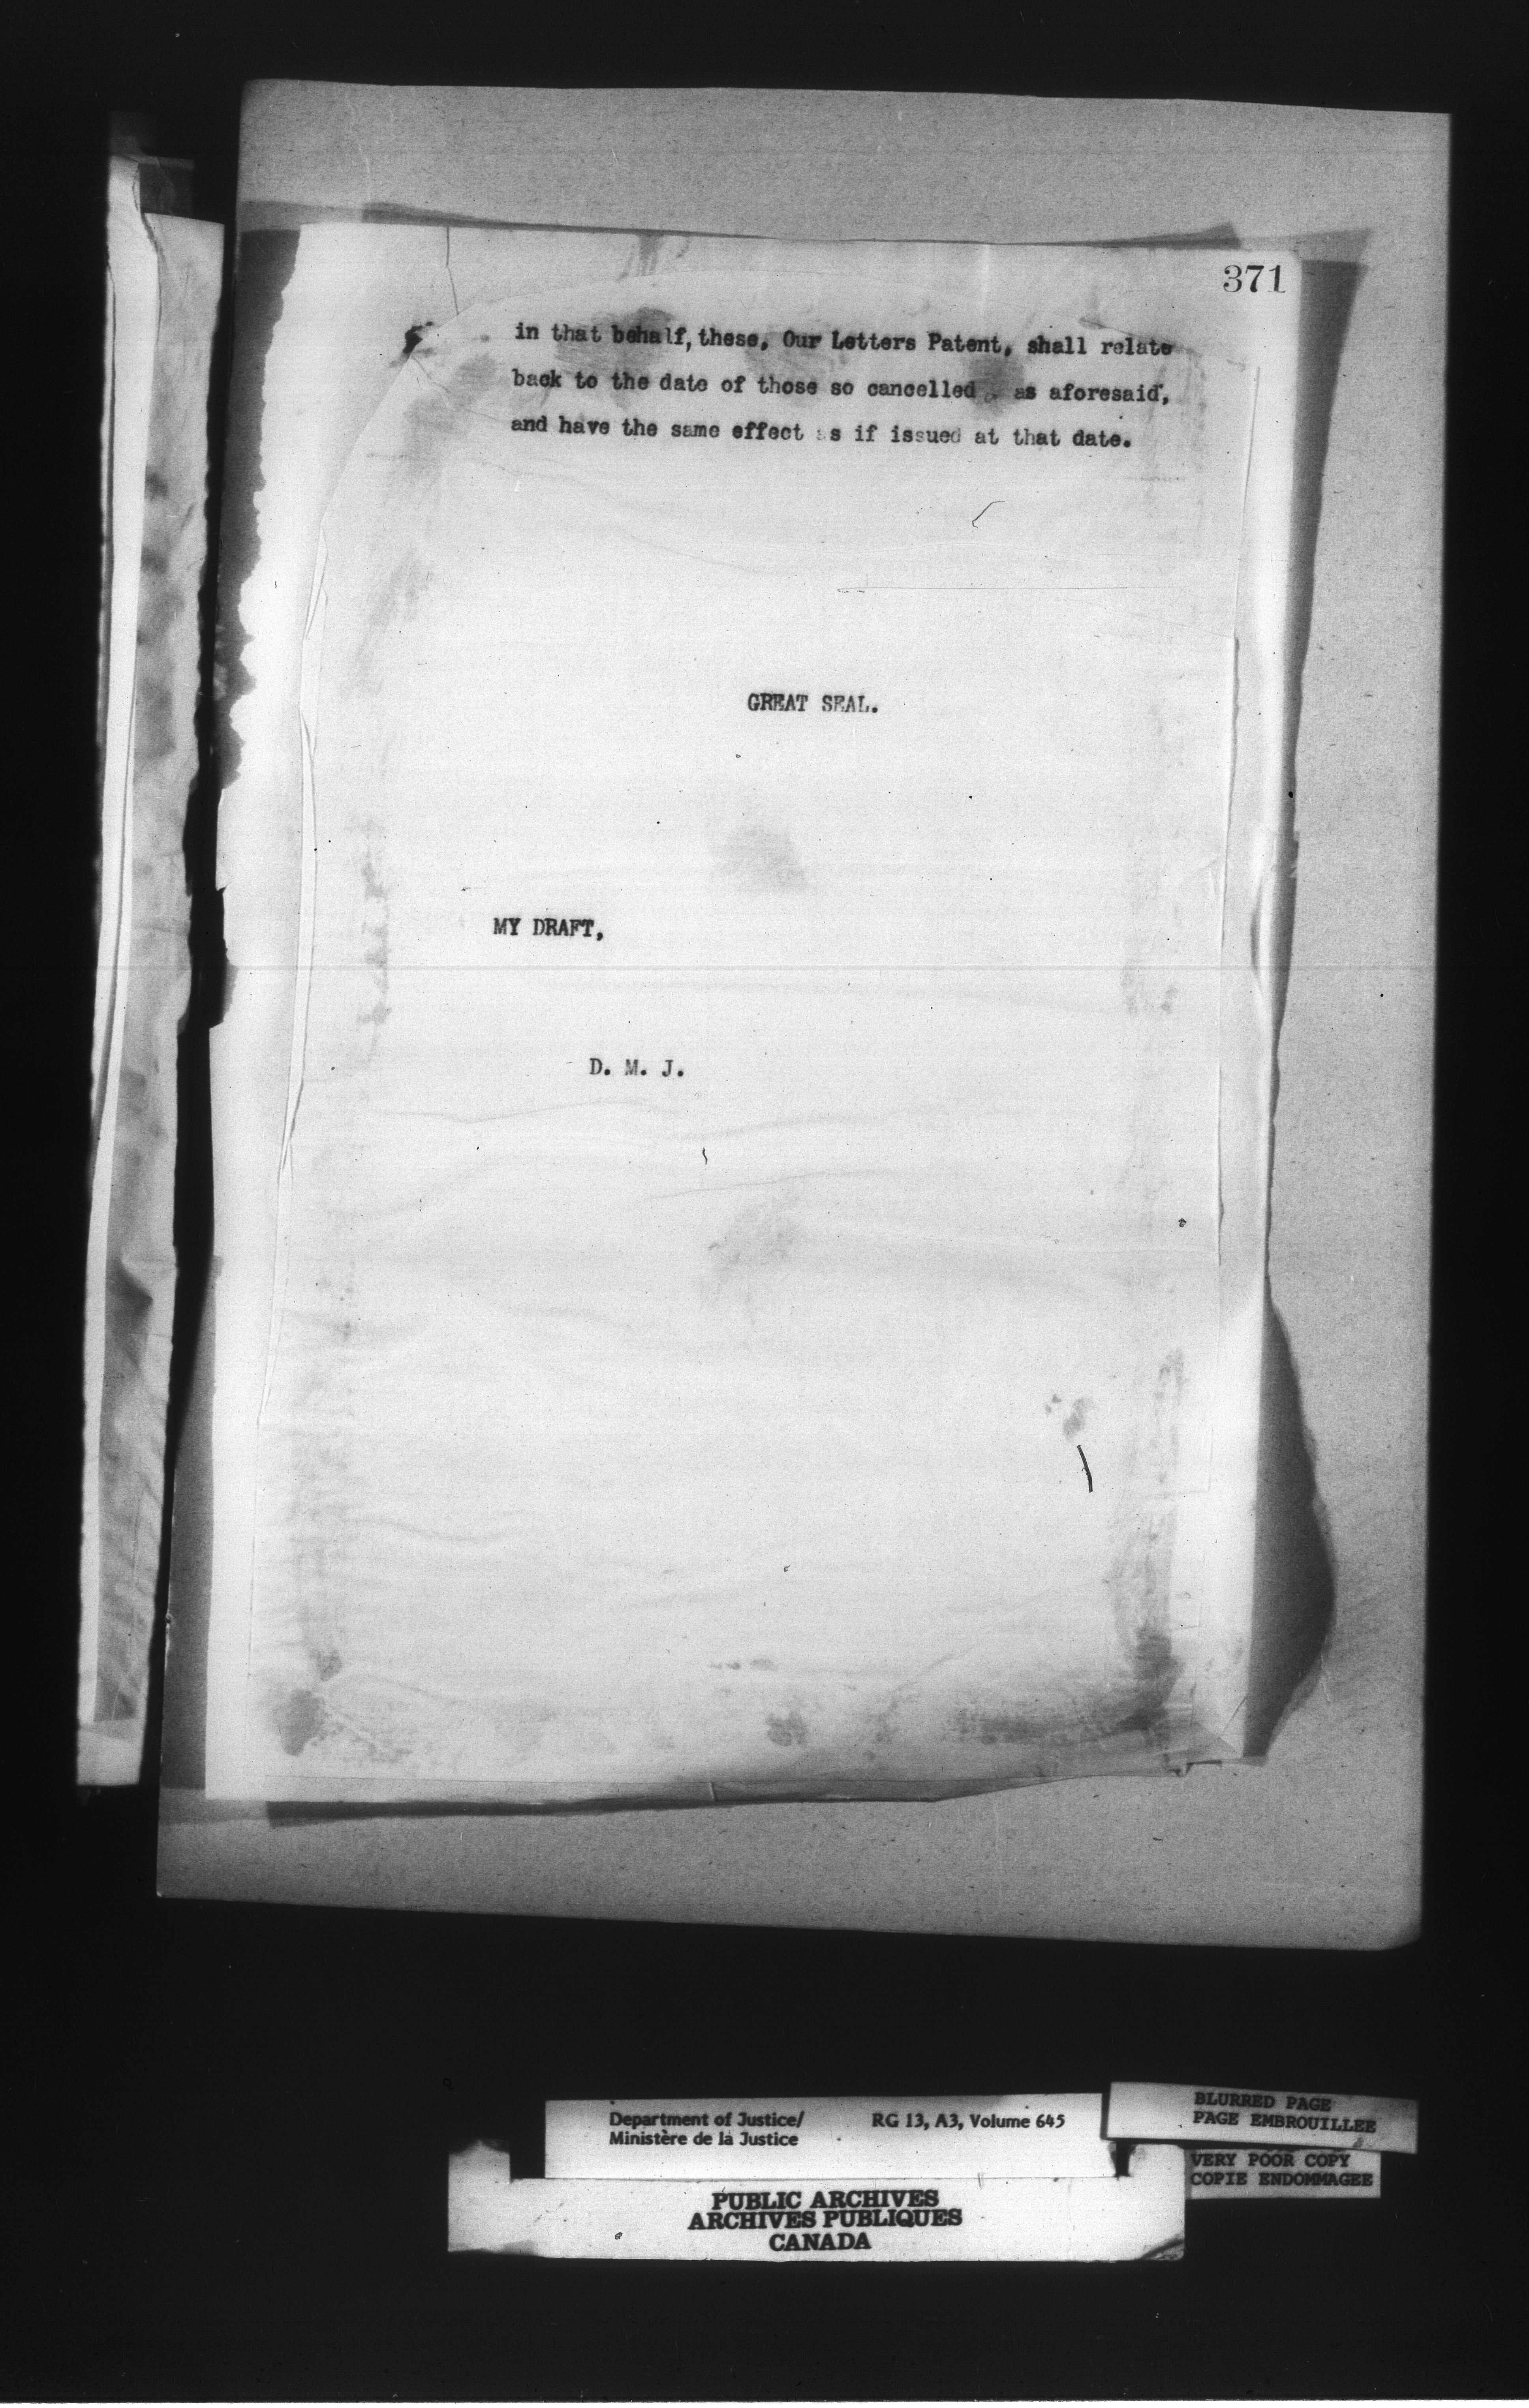 371
in that behalf, these, Our Letters Patent, shall relate
back to the date of those so cancelled, as aforesaid,
and have the same effect as if issued at that date.
GREAT SEAL.
MY DRAFT,
D. M. J.
Department of Justice/ RG 13, A3, Volume 645
Ministère de la Justice
BLURRED PAGE
PAGE EMBROUILLEE
VERY POOR COPY
COPIE ENDOMMAGEE
PUBLIC ARCHIVES
ARCHIVES PUBLIQUES
CANADA